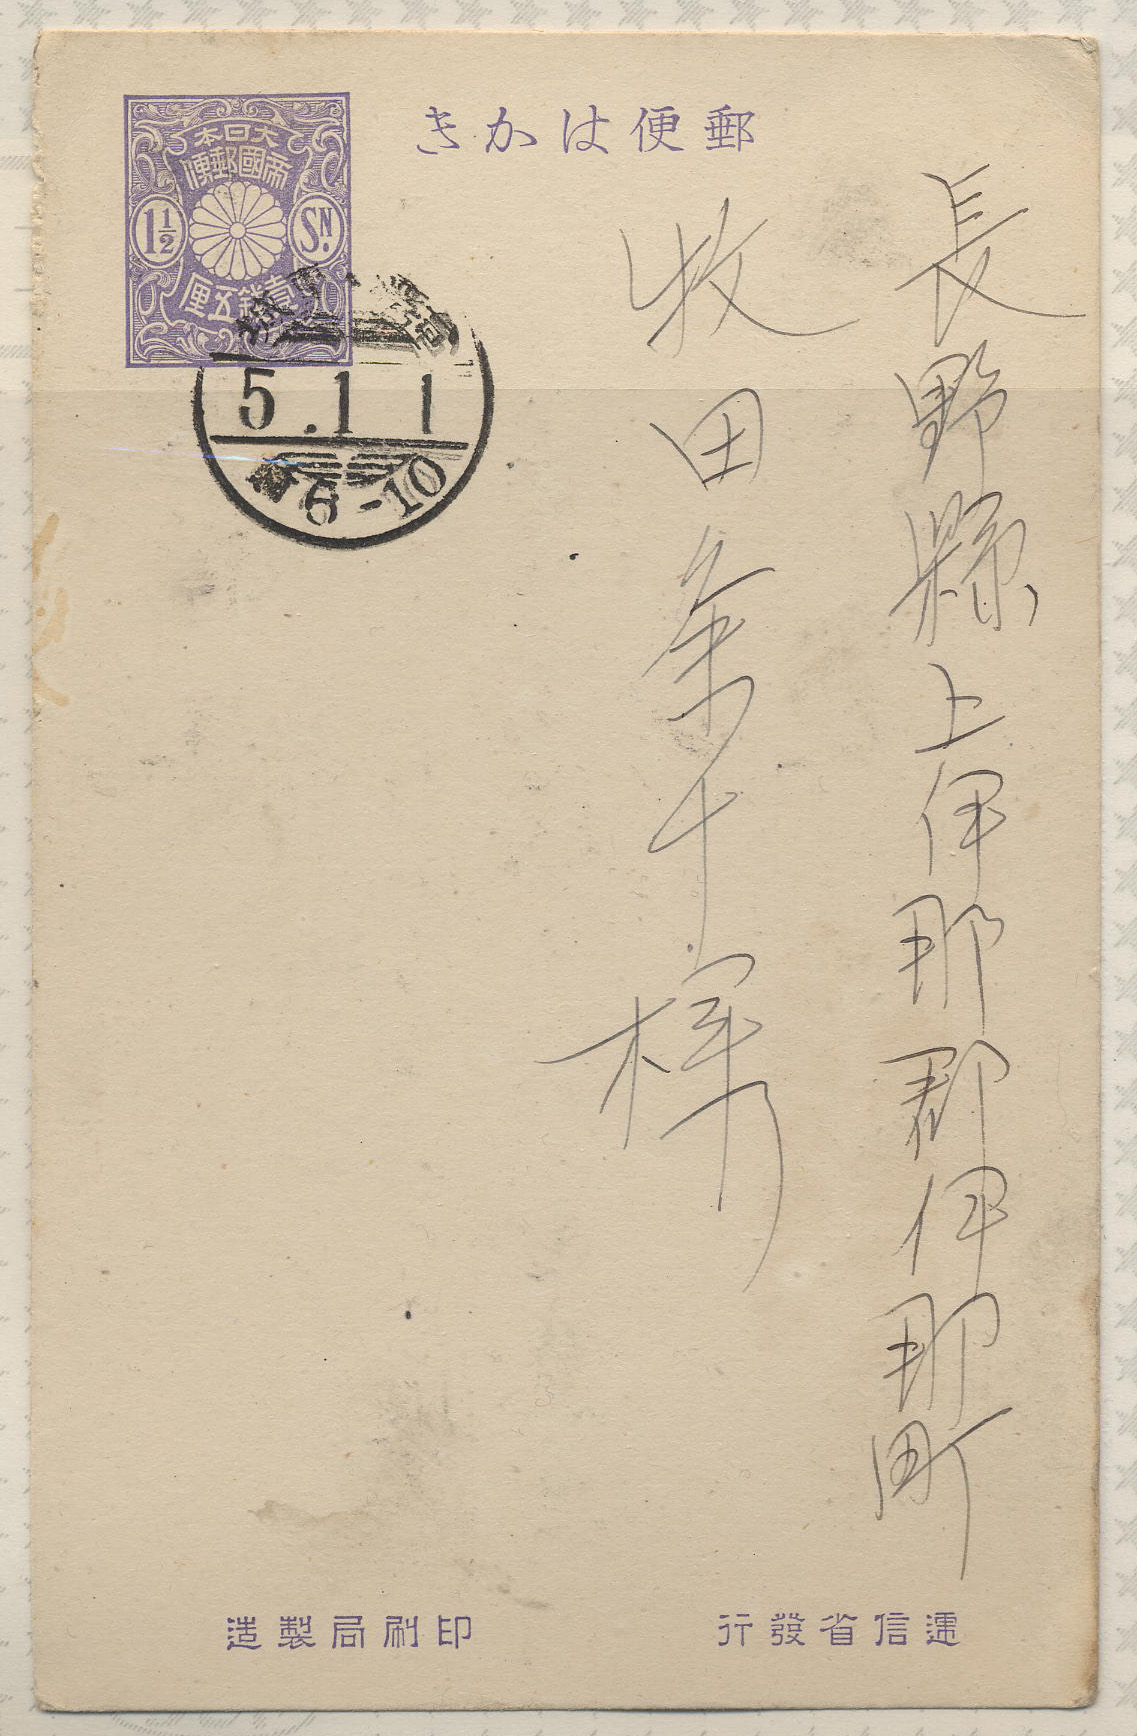 郵便はかき
大日本
帝國郵便
1½ SN.
壹錢五厘
5.1 1
6-10
長野縣上伊那郡伊那町
牧田
様
遞信省發行
印刷局製造